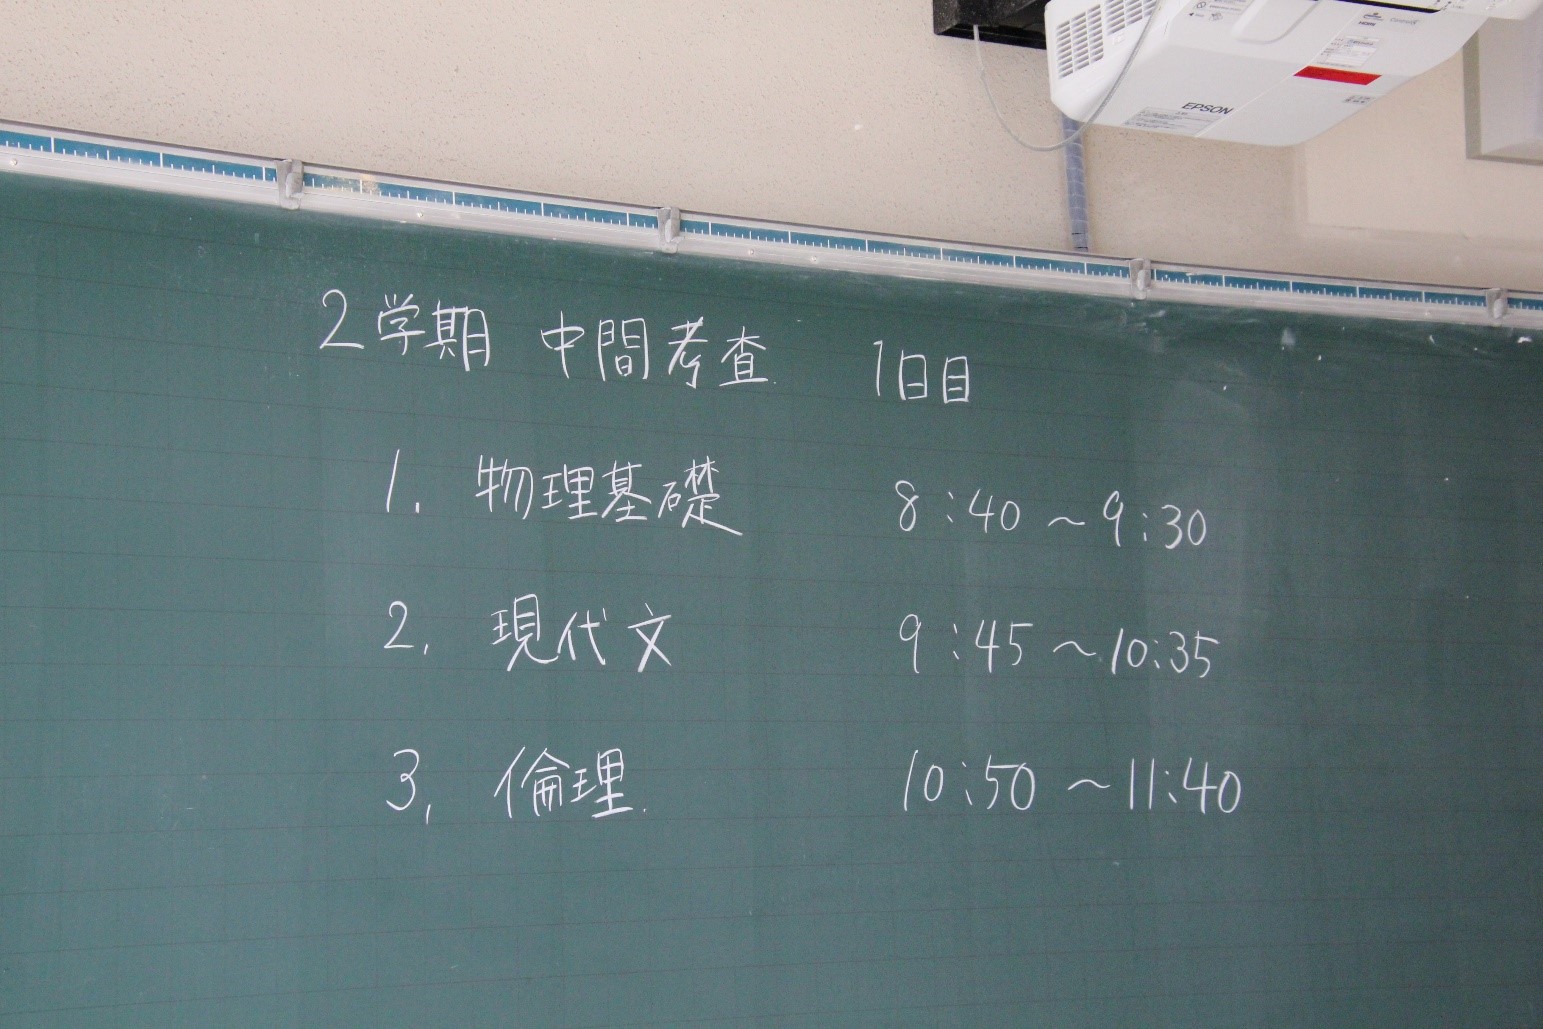 EPSON
2学期 中間考査 1日目
1. 物理基礎 8:40 ~ 9:30
2. 現代文 9:45 ~ 10:35
3, 倫理. 10:50 ~ 11:40